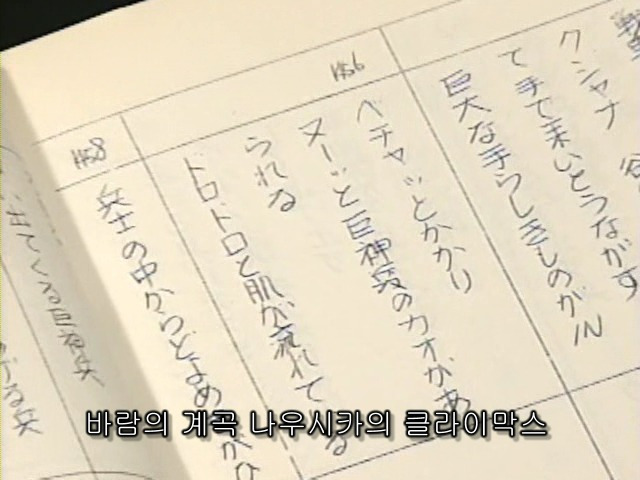 クシャナ 谷
て手で来いとうながす
巨大な手らしきものがIN
ベチャッとかかり
ヌーッと巨神兵のカオがあ
られる
ドロドロと肌が流れて
兵士の中からどよめ
巨神兵
바람의 계곡 나우시카의 클라이막스